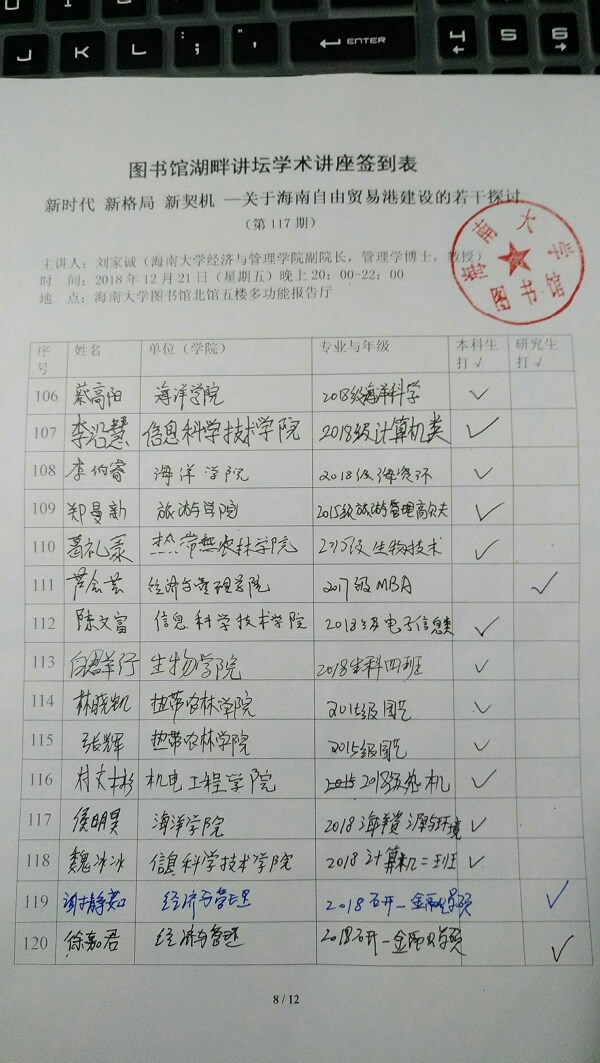 J K L : ; " ' ENTER 4 5 6
图书馆湖畔讲坛学术讲座签到表
新时代 新格局 新契机 —关于海南自由贸易港建设的若干探讨
（第 117 期）
主讲人：刘家诚（海南大学经济与管理学院副院长，管理学博士，教授）
时 间：2018 年 12 月 21 日（星期五）晚上 20：00-22：00
地 点：海南大学图书馆北馆五楼多功能报告厅
海南大学
图书馆
序号 姓名 单位（学院） 专业与年级 本科生打√ 研究生打√
106 蔡高阳 海洋学院 2018级海洋科学 √
107 李沿慧 信息科学技术学院 2018级计算机类 √
108 李伯睿 海洋学院 2018级海资环 √
109 郑曼新 旅游学院 2015级旅游管理高尔夫 √
110 葛礼 热带农林学院 2015级生物技术 √
111 芦会芸 经济与管理学院 2017级MBA √
112 陈文富 信息科学技术学院 2018级电子信息类 √
113 生物学院 2018生科四班 √
114 林晓凯 热带农林学院 2015级园艺 √
115 张辉 热带农林学院 2015级园艺 √
116 村文彬 机电工程学院 2018级热机 √
117 侯明昊 海洋学院 2018海洋资源与环境 √
118 魏冰冰 信息科学技术学院 2018计算机二班 √
119 谢静茹 经济与管理 2018石开一金融学硕 √
120 徐嘉君 经济与管理 2018石开一金融学硕 √
8 / 12